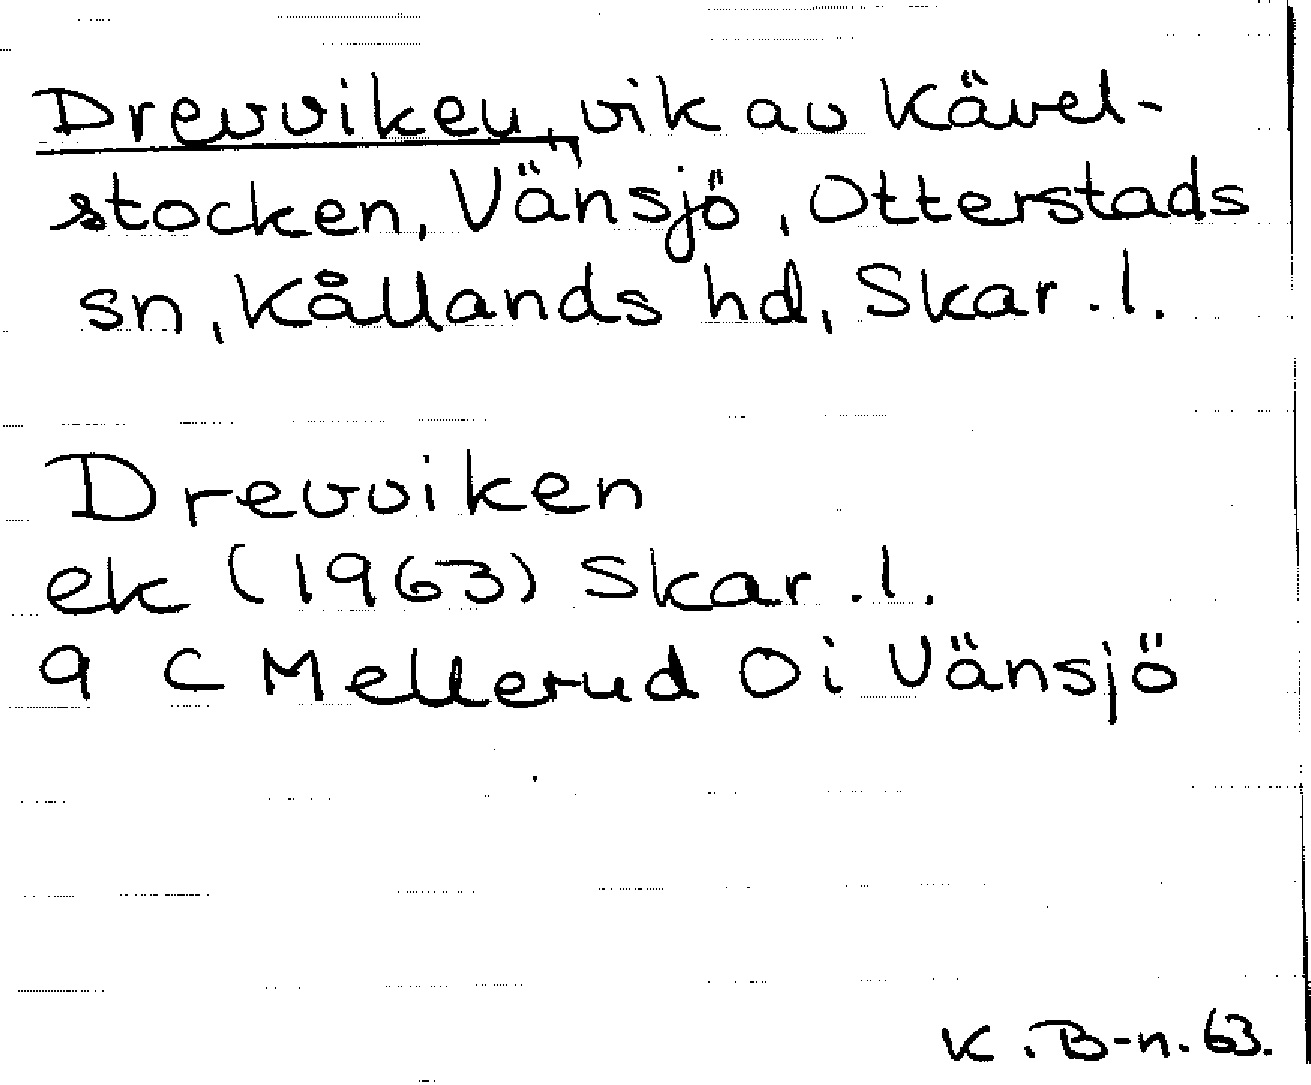 Drevviken, vik av Kävel-
stocken, Vänsjö, Otterstads
sn, Kållands hd, Skar. l.
Drevviken
ek (1963) Skar. l.
9 C Mellerud Oi Vänsjö
K. B-n. 63.